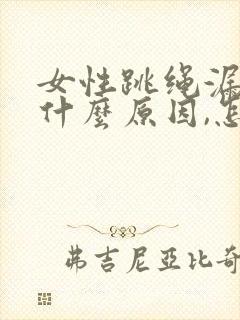 女性跳绳漏
什麼原因,怎
弗吉尼亚比奇